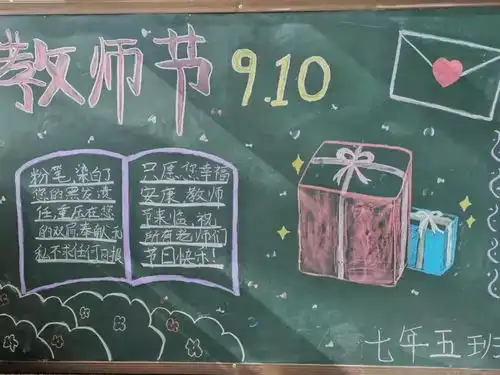 教师节 9.10
粉笔,染白了
您的黑发责
任重压在您
的双肩奉献无
私不求任何回报
只愿您幸福
安康,教师
节来临,祝
所有老师们
节日快乐!
七年五班